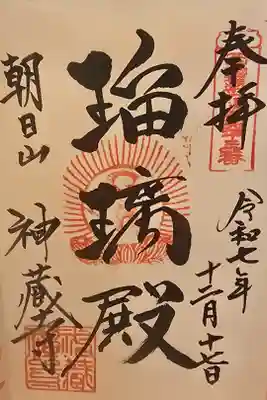 奉拝
令和七年
十二月十七日
瑠璃殿
朝日山
神蔵寺